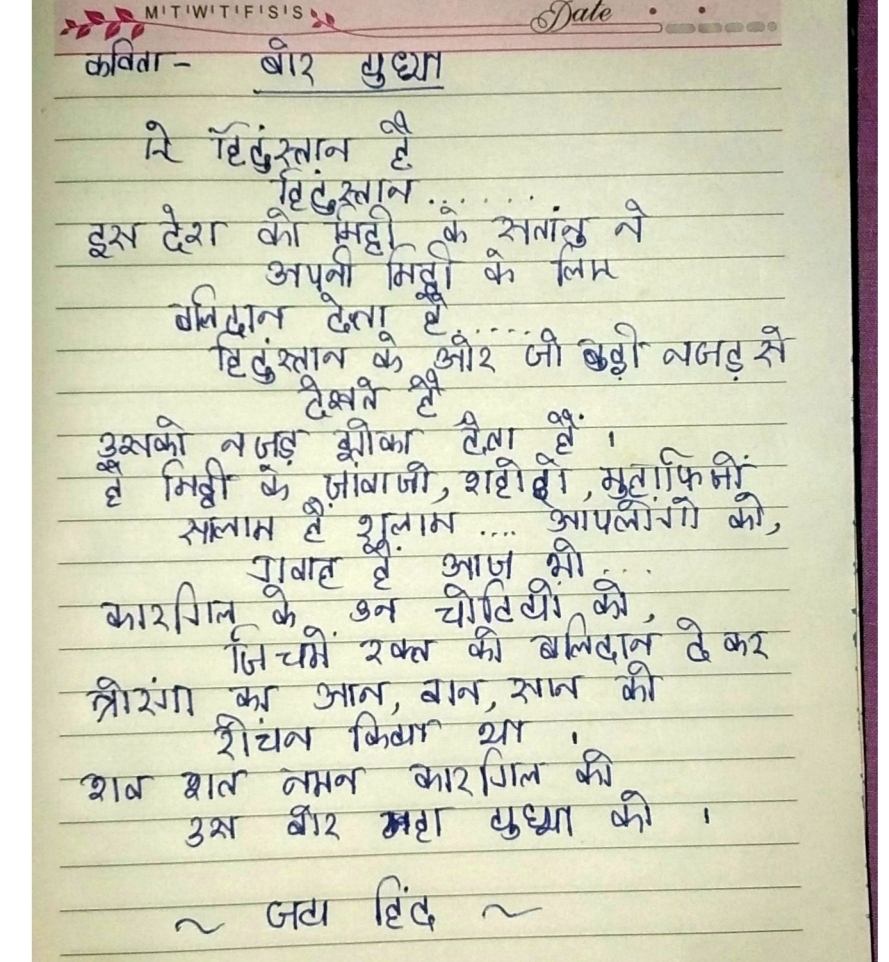 M T W T F S S
Date
कविता - वीर युध्धा
रे हिंदुस्तान है
हिंदुस्तान.......
इस देश की मिट्टी के सतांनु ने
अपनी मिट्टी के लिए
बलिदान देता है.....
हिंदुस्तान के ओर जो बुड़ी नजड़ से
देखते है
उसको नजड़ झोका देता हैं ।
है मिट्टी के जांबाजो, शहीदो, मुहाफिजों
सलाम है सलाम .... आपलोगो को,
गवाह है आज भी ....
कारगिल के उन चोटियो को,
जिचमें रक्त की बलिदान दे कर
त्रीरंगा का आन, बान, सान को
सींचन किया था ।
शत शत नमन कारगिल की
उस वीर महा युध्धा को ।
~ जय हिंद ~